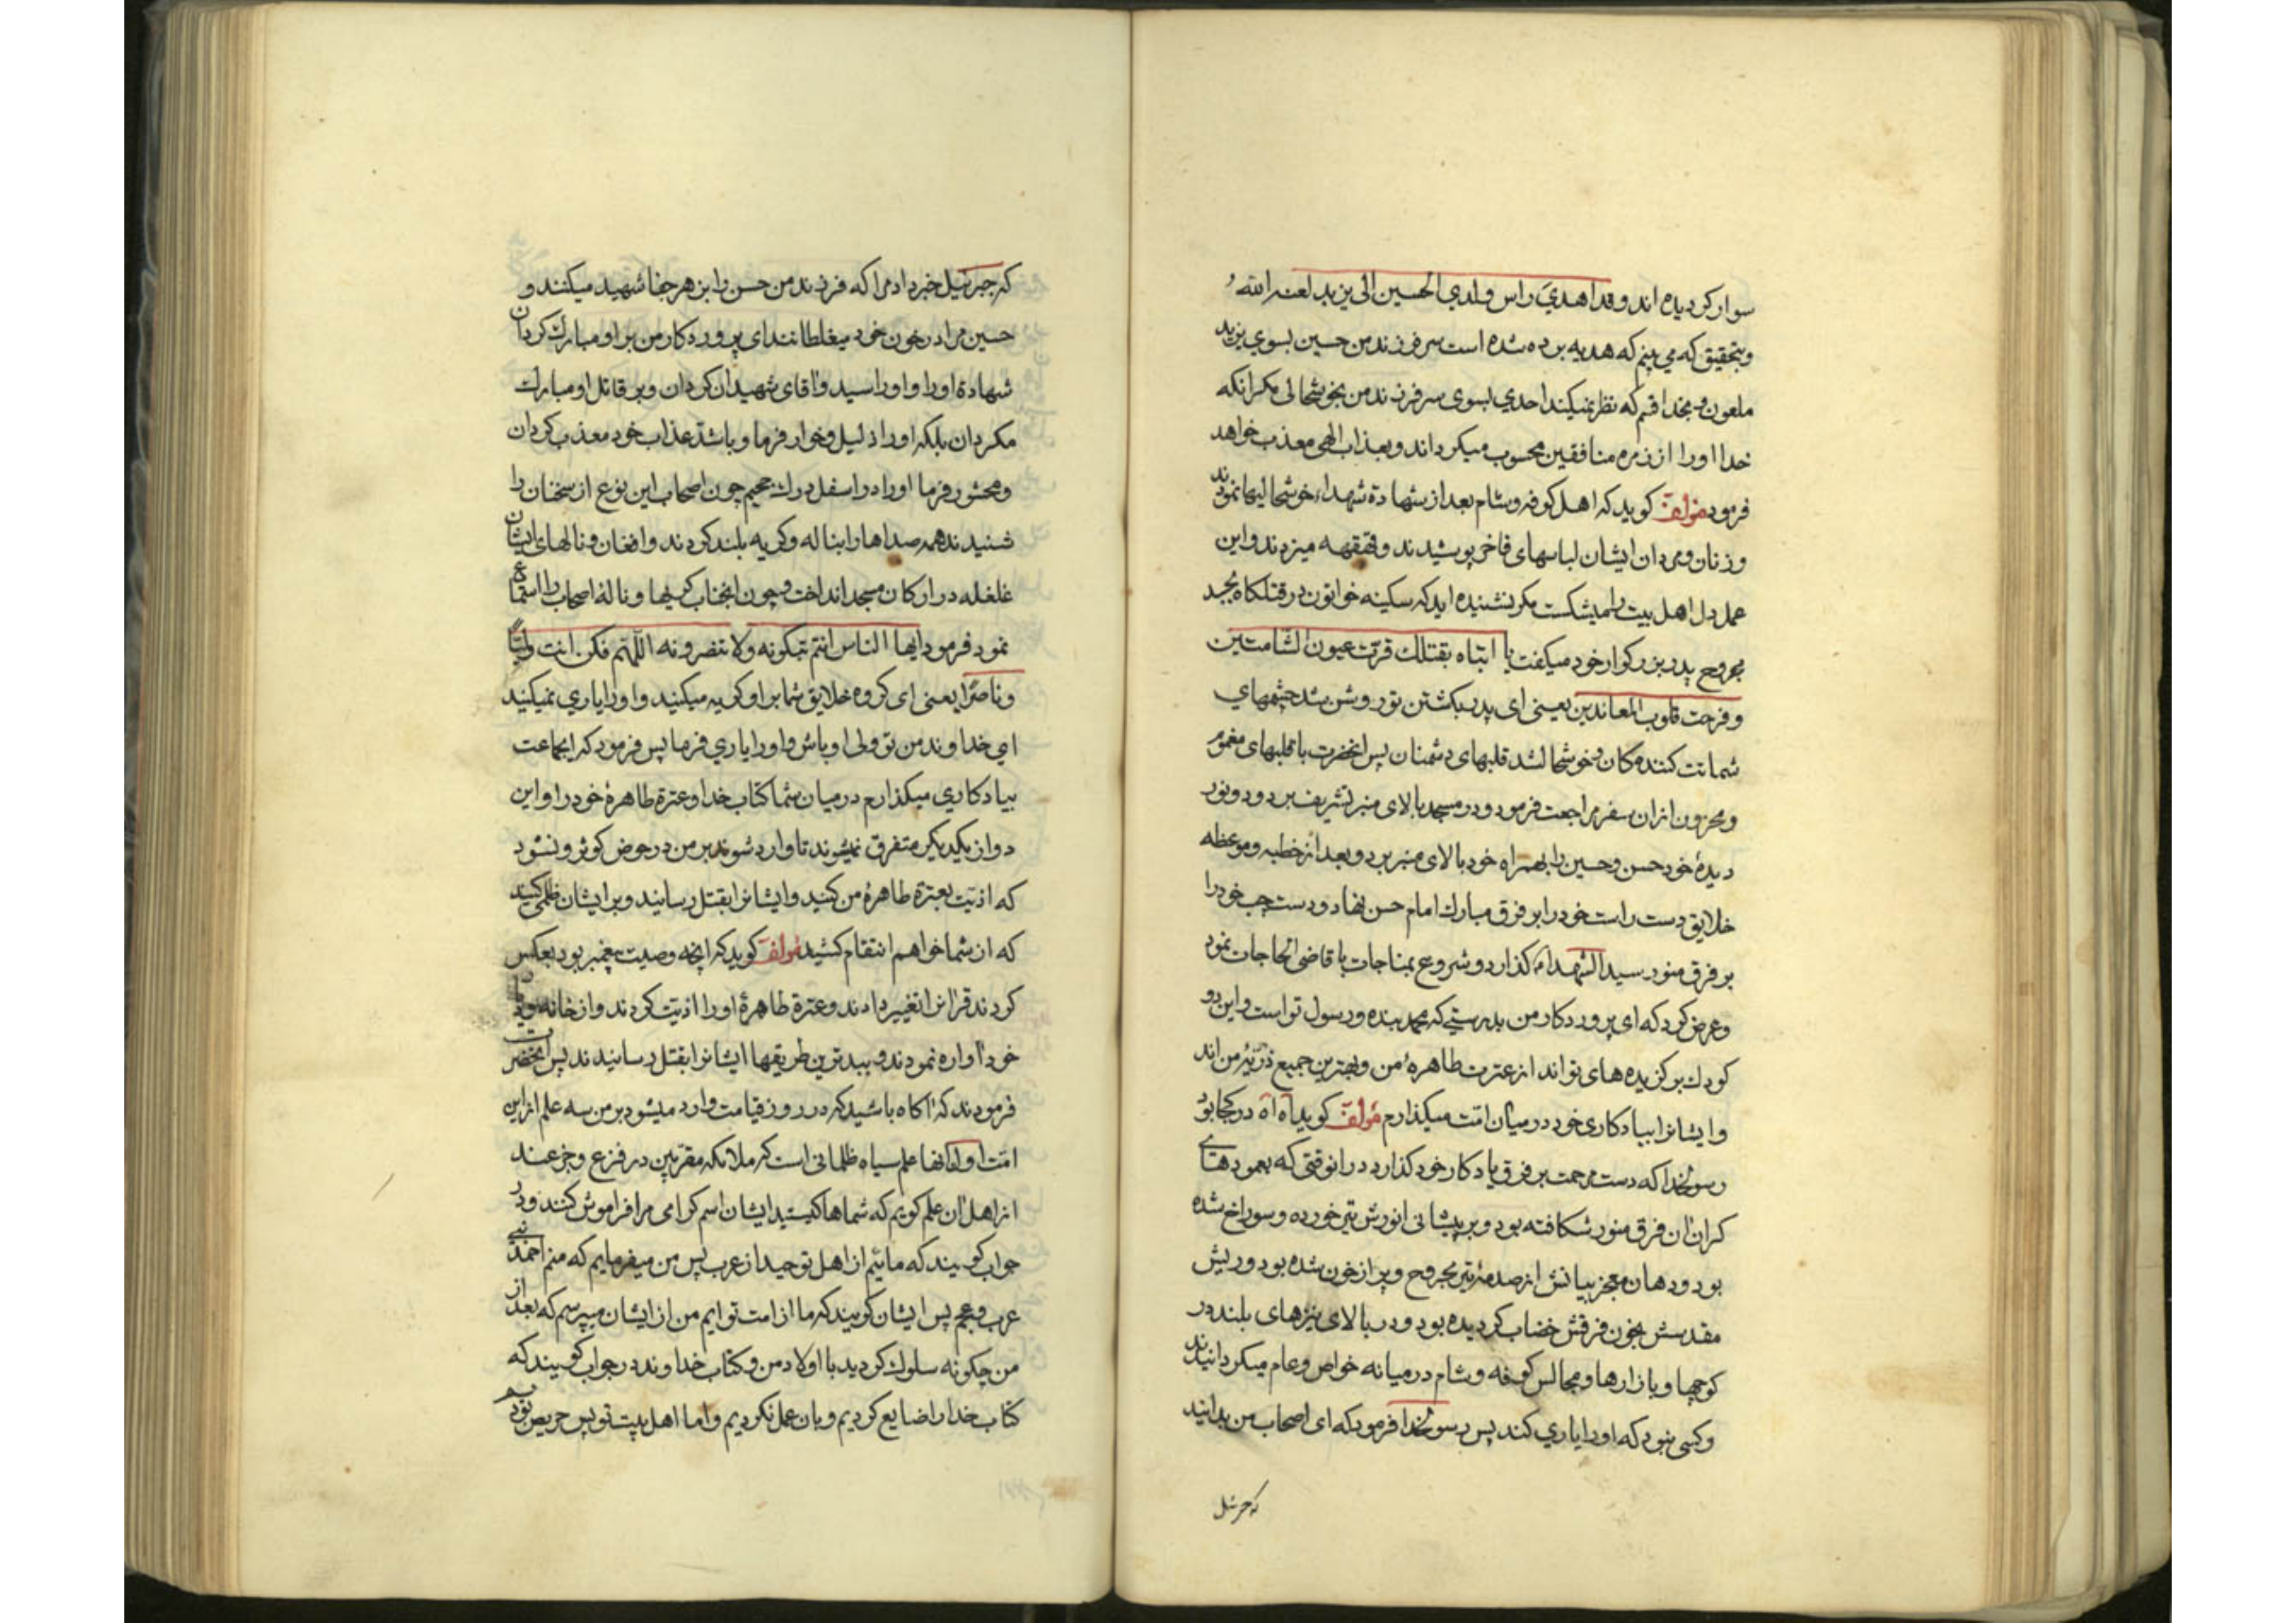 سوار کردیده اند و قد اهدي راس ولدي الحسین الی یزید لعنه الله
و بتحقیق که می بینم که هدیه برده شده است سر فرزند من حسین بسوي یزید
ملعون و بخدا قسم که نظر نمیکند احدي بسوی سر فرزند من بخوشحالی مکر انکه
خدا اورا از زمره منافقین محسوب میکرداند و بعذاب الهی معذب خواهد
فرمود مؤلف کوید که اهل کوفه و شام بعد از شهادة شهداء خوشحالیها نمودند
و زنان و مردان ایشان لباسهای فاخر پوشیدند و قهقهه میزدند و این
عمل دل اهل بیت را میشکست مکر نشنیده اید که سکینه خواتون در قتلکاه بجسد
مجروح پدر بزرکوار خود میکفت یا ابتاه بقتلك قرت عیون الشامتین
و فرحت قلوب المعاندین یعنی ای پدر بکشتن تو روشن شد چشمهاي
شماتت کننده کان و خوشحال شد قلبهای دشمنان پس انحضرت با قلبهای مغموم
و محزون از ان سفر مراجعت فرمود و در مسجد بالای منبر تشریف برد و دو نور
دیدهٔ خود حسن و حسین را بهمراه خود بالای منبر برد و بعد از خطبه و موعظه
خلایق دست راست خود را بر فرق مبارك امام حسن نهاد و دست چپ خود را
بر فرق منور سید الشهداء گذارد و شروع بمناجات با قاضی الحاجات نمود
و عرض کرد که ای پروردکار من بدرستی که محمد بنده و رسول تو است و این دو
کودك بر کزیده های تو اند از عترت طاهرهٔ من و بهترین جمیع ذریهٔ من اند
و ایشانرا بیادکاری خود در میان امت میکذارم مؤلف کوید آه آه در کجا بود
رسولخدا که دست مرحمت بر فرق یادکار خود کذارد در انوقتی که بعمودهاے
کران ان فرق منور شکافته بود و بر پیشانی انورش تیر خورده و سوراخ شده
بود و دهان معجز بیانش از صدمهٔ تیر مجروح و پر از خون شده بود و ریش
مقدسش بخون فرقش خضاب کردیده بود و در بالای نیزهای بلند در
کوچها و بازارها و مجالس کوفه و شام در میانه خواص و عام میکردانیدند
و کسی نبود که اورا یاري کند پس رسولخدا فرمود که ای اصحاب من بدانید
که جبرئیل
که جبرئیل خبر داد مرا که فرزند من حسن را بزهر جفا شهید میکنند و
حسین مرا در خون خود میغلطانند ای پروردکار من بر او مبارك کردان
شهادة اورا و اورا سید و اقای شهیدان کردان و بر قاتل او مبارك
مکردان بلکه اورا ذلیل و خوار فرما و باشد عذاب خود معذب کردان
و محشور فرما اورا در اسفل درك جحیم چون اصحاب این نوع از سخنان را
شنیدند همه صداها را بناله و کریه بلند کردند و افغان و نالهای ایشان
غلغله در ارکان مسجد انداخت و چون انجناب کریها و نالهٔ اصحاب را استماع
نمود فرمود ایها الناس انتم تبکونه و لا تنصرونه اللهم فکن انت ولیا
و ناصرا یعنی ای کروه خلایق شما بر او کریه میکنید و اورا یاري نمیکنید
اي خداوند من تو ولی او باش و اورا یاري فرما پس فرمود که ایجماعت
بیادکاري میکذارم در میان شما کتاب خدا و عترة طاهرهٔ خود را و این
دو از یکدیکر متفرق نمیشوند تا وارد شوند بر من در حوض کوثر و نشود
که اذیت بعترة طاهرهٔ من کنید و ایشانرا بقتل رسانید و بر ایشان ظلم کنید
که از شما خواهم انتقام کشید مؤلف کوید که انچه وصیت پیغمبر بود بعکس
کردند قرانرا تغییر دادند و عترة طاهرهٔ اورا اذیت کردند و از خانه و دیار
خود آواره نمودند و ببدترین طریقها ایشانرا بقتل رسانیدند پس انحضرت
فرمودند که آکاه باشید که در روز قیامت وارد میشود بر من سه علم از این
امت اول انها علم سیاه ظلمانی است که ملائکه مقربین در فزع و جزعند
از اهل ان علم کویم که شماها کیستید ایشان اسم کرامی مرا فراموش کنند و در
جواب کویند که مائیم از اهل توحید از عرب پس من میفرمایم که منم احمد نبی
عرب و عجم پس ایشان کویند که ما از امت تو ایم من از ایشان میپرسم که بعد از
من چکونه سلوك کردید با اولاد من و کتاب خداوند در جواب کویند که
کتاب خدا را ضایع کردیم و بان عمل نکردیم و اما اهل بیت تو پس حریص بودیم